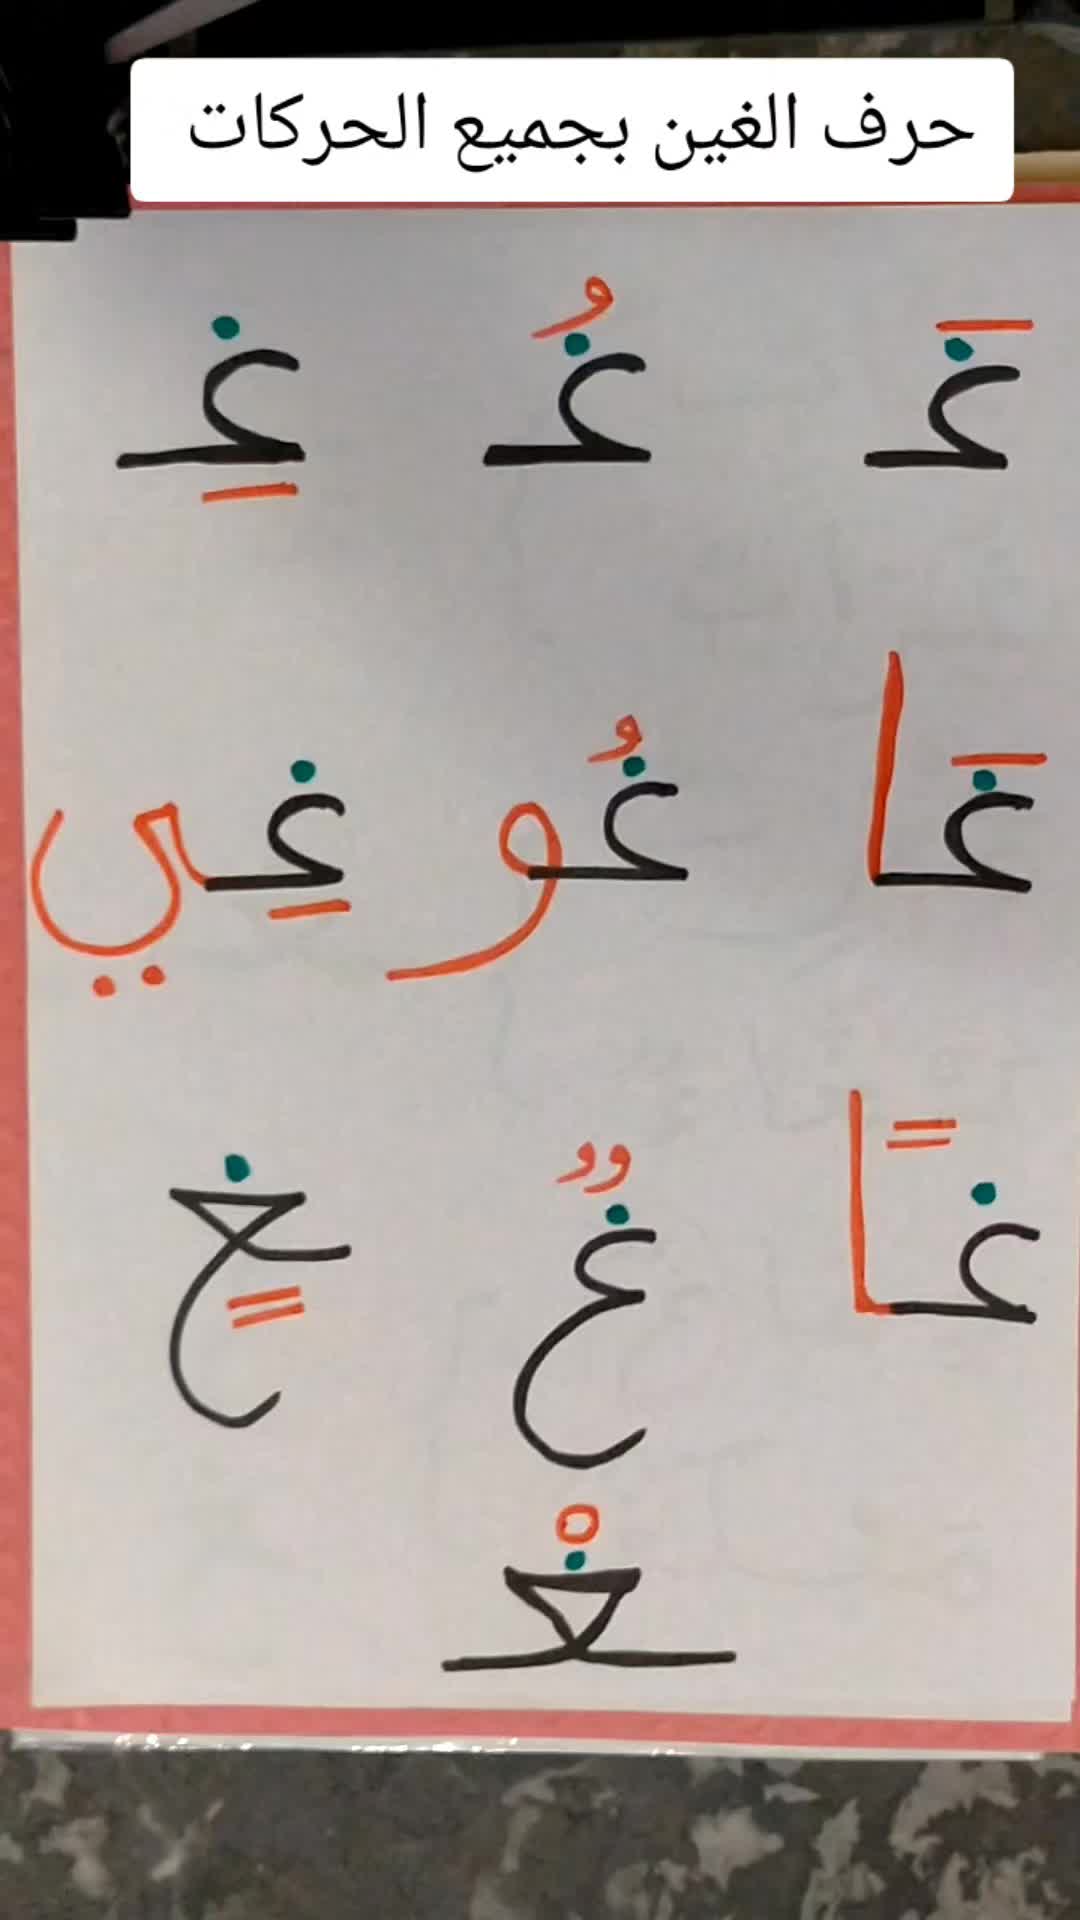 حرف الغين بجميع الحركات
غَـ غُـ غِـ
غَا غُو غِي
غًا غٌ ـغٍ
ـغْـ